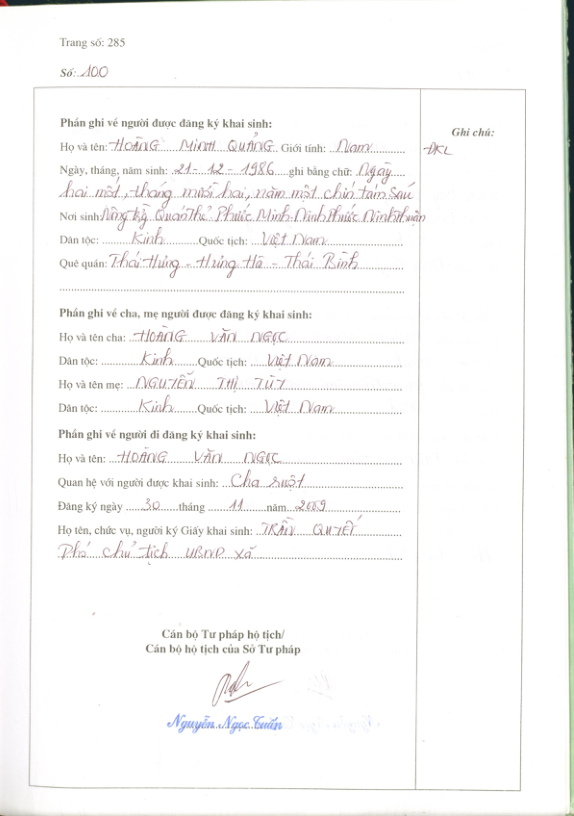 Trang số: 285
Số: 100
Phần ghi về người được đăng ký khai sinh:
Ghi chú:
Họ và tên: HOÀNG MINH QUẢNG Giới tính: Nam
ĐKL
Ngày, tháng, năm sinh: 21-12-1986 ghi bằng chữ: Ngày
hai mốt, tháng mười hai, năm một chín tám sáu
Nơi sinh Nông Kỳ Quán Thẻ Phước Minh-Ninh Phước Ninh Thuận
Dân tộc: Kinh Quốc tịch: Việt Nam
Quê quán: Thái Hưng - Hưng Hà - Thái Bình
Phần ghi về cha, mẹ người được đăng ký khai sinh:
Họ và tên cha: HOÀNG VĂN NGỌC
Dân tộc: Kinh Quốc tịch: Việt Nam
Họ và tên mẹ: NGUYỄN THỊ
Dân tộc: Kinh Quốc tịch: Việt Nam
Phần ghi về người đi đăng ký khai sinh:
Họ và tên: HOÀNG VĂN NGỌC
Quan hệ với người được khai sinh: Cha ruột
Đăng ký ngày 30 tháng 11 năm 2009
Họ tên, chức vụ, người ký Giấy khai sinh: TRẦN QUYẾT
Phó chủ tịch UBND xã
Cán bộ Tư pháp hộ tịch/
Cán bộ hộ tịch của Sở Tư pháp
Nguyễn Ngọc Tuấn